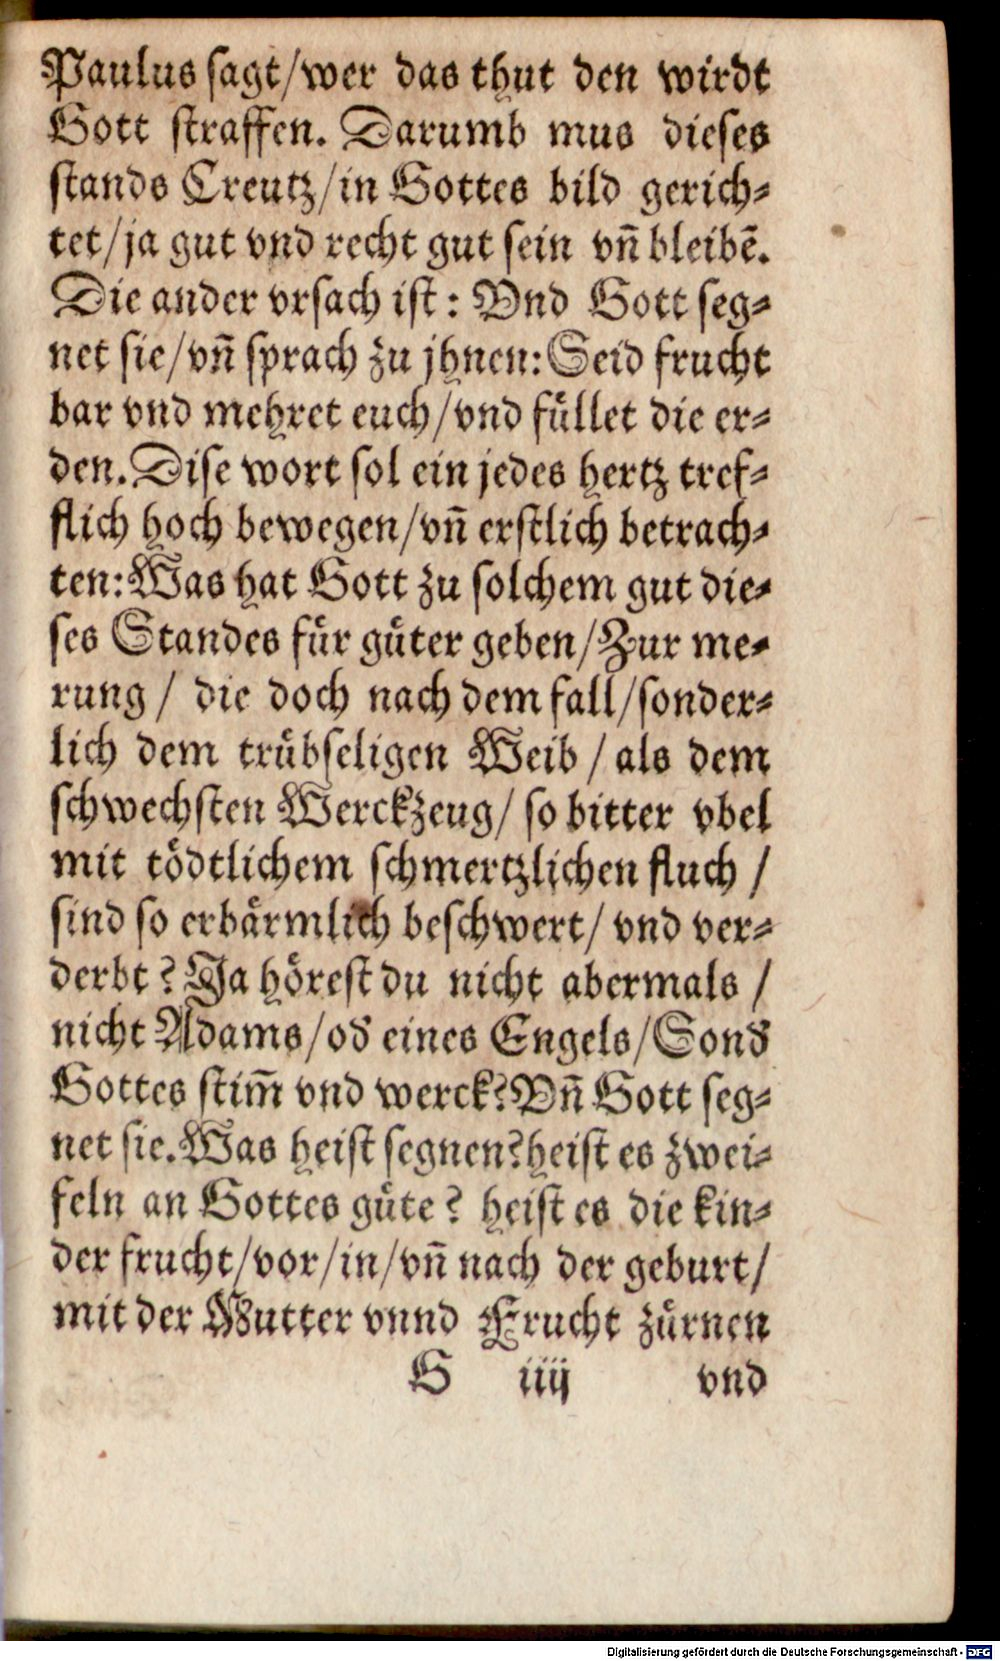 Paulus sagt/wer das thut den wirdt
Gott straffen. Darumb mus dieses
stands Creutz/in Gottes bild gerich⸗
tet/ja gut vnd recht gut sein vñ bleibẽ.
Die ander vrsach ist: Vnd Gott seg⸗
net sie/vñ sprach zu jhnen: Seid frucht
bar vnd mehret euch/vnd füllet die er⸗
den. Dise wort sol ein jedes hertz tref⸗
flich hoch bewegen/vñ erstlich betrach⸗
ten: Was hat Gott zu solchem gut die⸗
ses Standes für güter geben/Zur me⸗
rung / die doch nach dem fall/sonder⸗
lich dem trübseligen Weib / als dem
schwechsten Werckzeug/ so bitter vbel
mit tödtlichem schmertzlichen fluch /
sind so erbärmlich beschwert/ vnd ver⸗
derbt? Ja hörest du nicht abermals /
nicht Adams/od eines Engels/Sond
Gottes stim̃ vnd werck? Vñ Gott seg⸗
net sie. Was heist segnen? heist es zwei⸗
feln an Gottes güte? heist es die kin⸗
der frucht/vor/in/vñ nach der geburt/
mit der Mutter vnnd Frucht zürnen
G iiij vnd
Digitalisierung gefördert durch die Deutsche Forschungsgemeinschaft - DFG